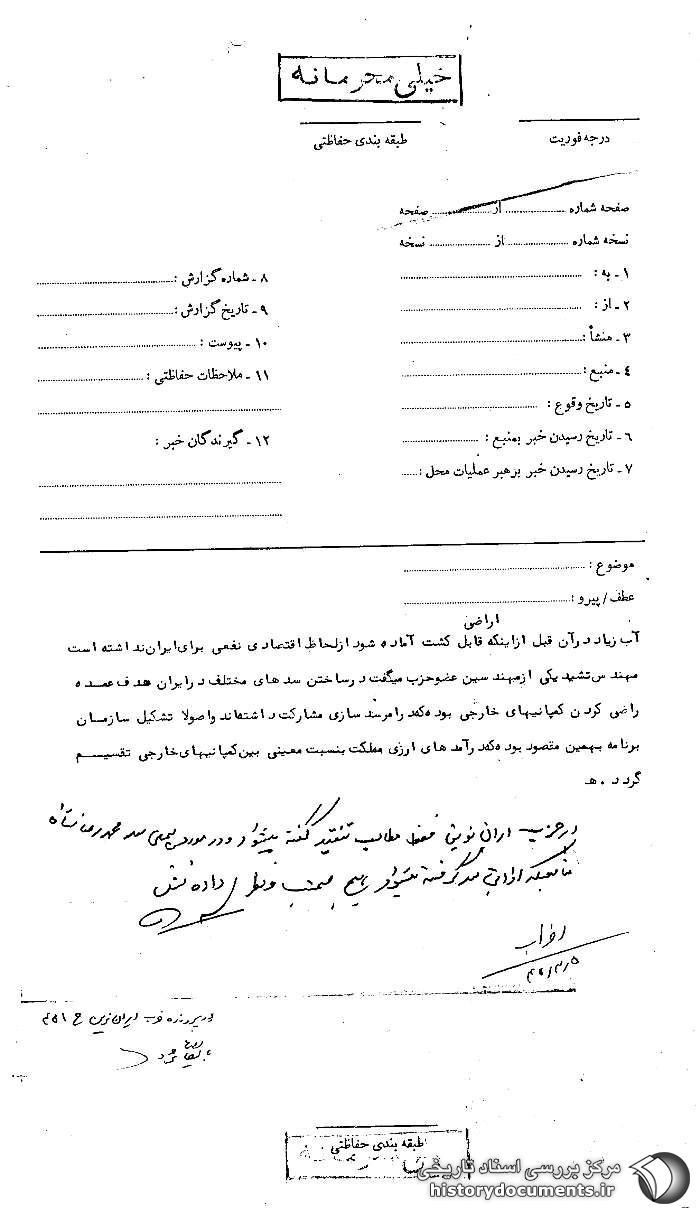 خیلی محرمانه
درجه فوریت
طبقه بندی حفاظتی
صفحه شماره ........ از ........ صفحه
نسخه شماره ........ از ........ نسخه
۱ـ به :
۲ـ از :
۳ـ منشأ :
۴ـ منبع :
۵ـ تاریخ وقوع :
۶ـ تاریخ رسیدن خبر بمنبع :
۷ـ تاریخ رسیدن خبر برهبر عملیات محل :
۸ـ شماره گزارش :
۹ـ تاریخ گزارش :
۱۰ـ پیوست :
۱۱ـ ملاحظات حفاظتی :
۱۲ـ گیرندگان خبر :
موضوع :
عطف/پیرو :
اراضی
آب زیاد در آن قبل از اینکه قابل کشت آماده شود از لحاظ اقتصادی نفعی برای ایران نداشته است
مهندس تشید یکی از مهندسین عضو حزب میگفت در ساختن سدهای مختلف در ایران هدف عمده
راضی کردن کمپانیهای خارجی بوده که در امر سد سازی مشارکت داشته‌اند و اصولا تشکیل سازمان
برنامه بهمین مقصود بوده که در آمدهای ارزی مملکت بنسبت معینی بین کمپانیهای خارجی تقسیم
گردد . ه
در حزب ایران نوین فقط مطالب تنقید گفته میشود و در مورد سد محمد رضا شاه
داده
طبقه بندی حفاظتی
مرکز بررسی اسناد تاریخی
historydocuments.ir